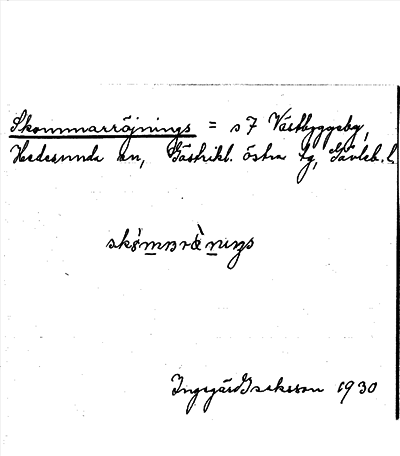 Skommarröjnings = s 7 Västbyggeby,
Hedesunda sn, Gästrikl. östra tg, Gävleb. l.
Ingegärd Isaksson 1930